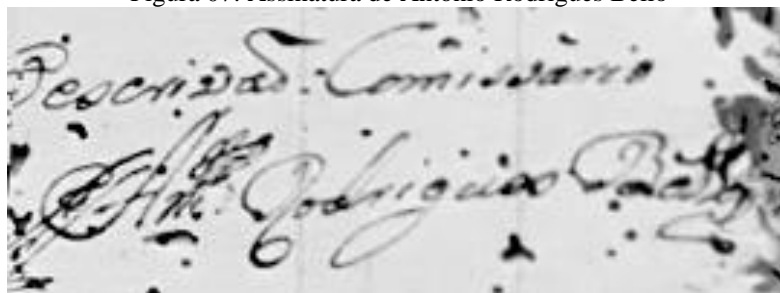 Figura 07: Assinatura de Antônio Rodrigues Bello
Pescrivaõ. Comissário
Rodrigues Bello